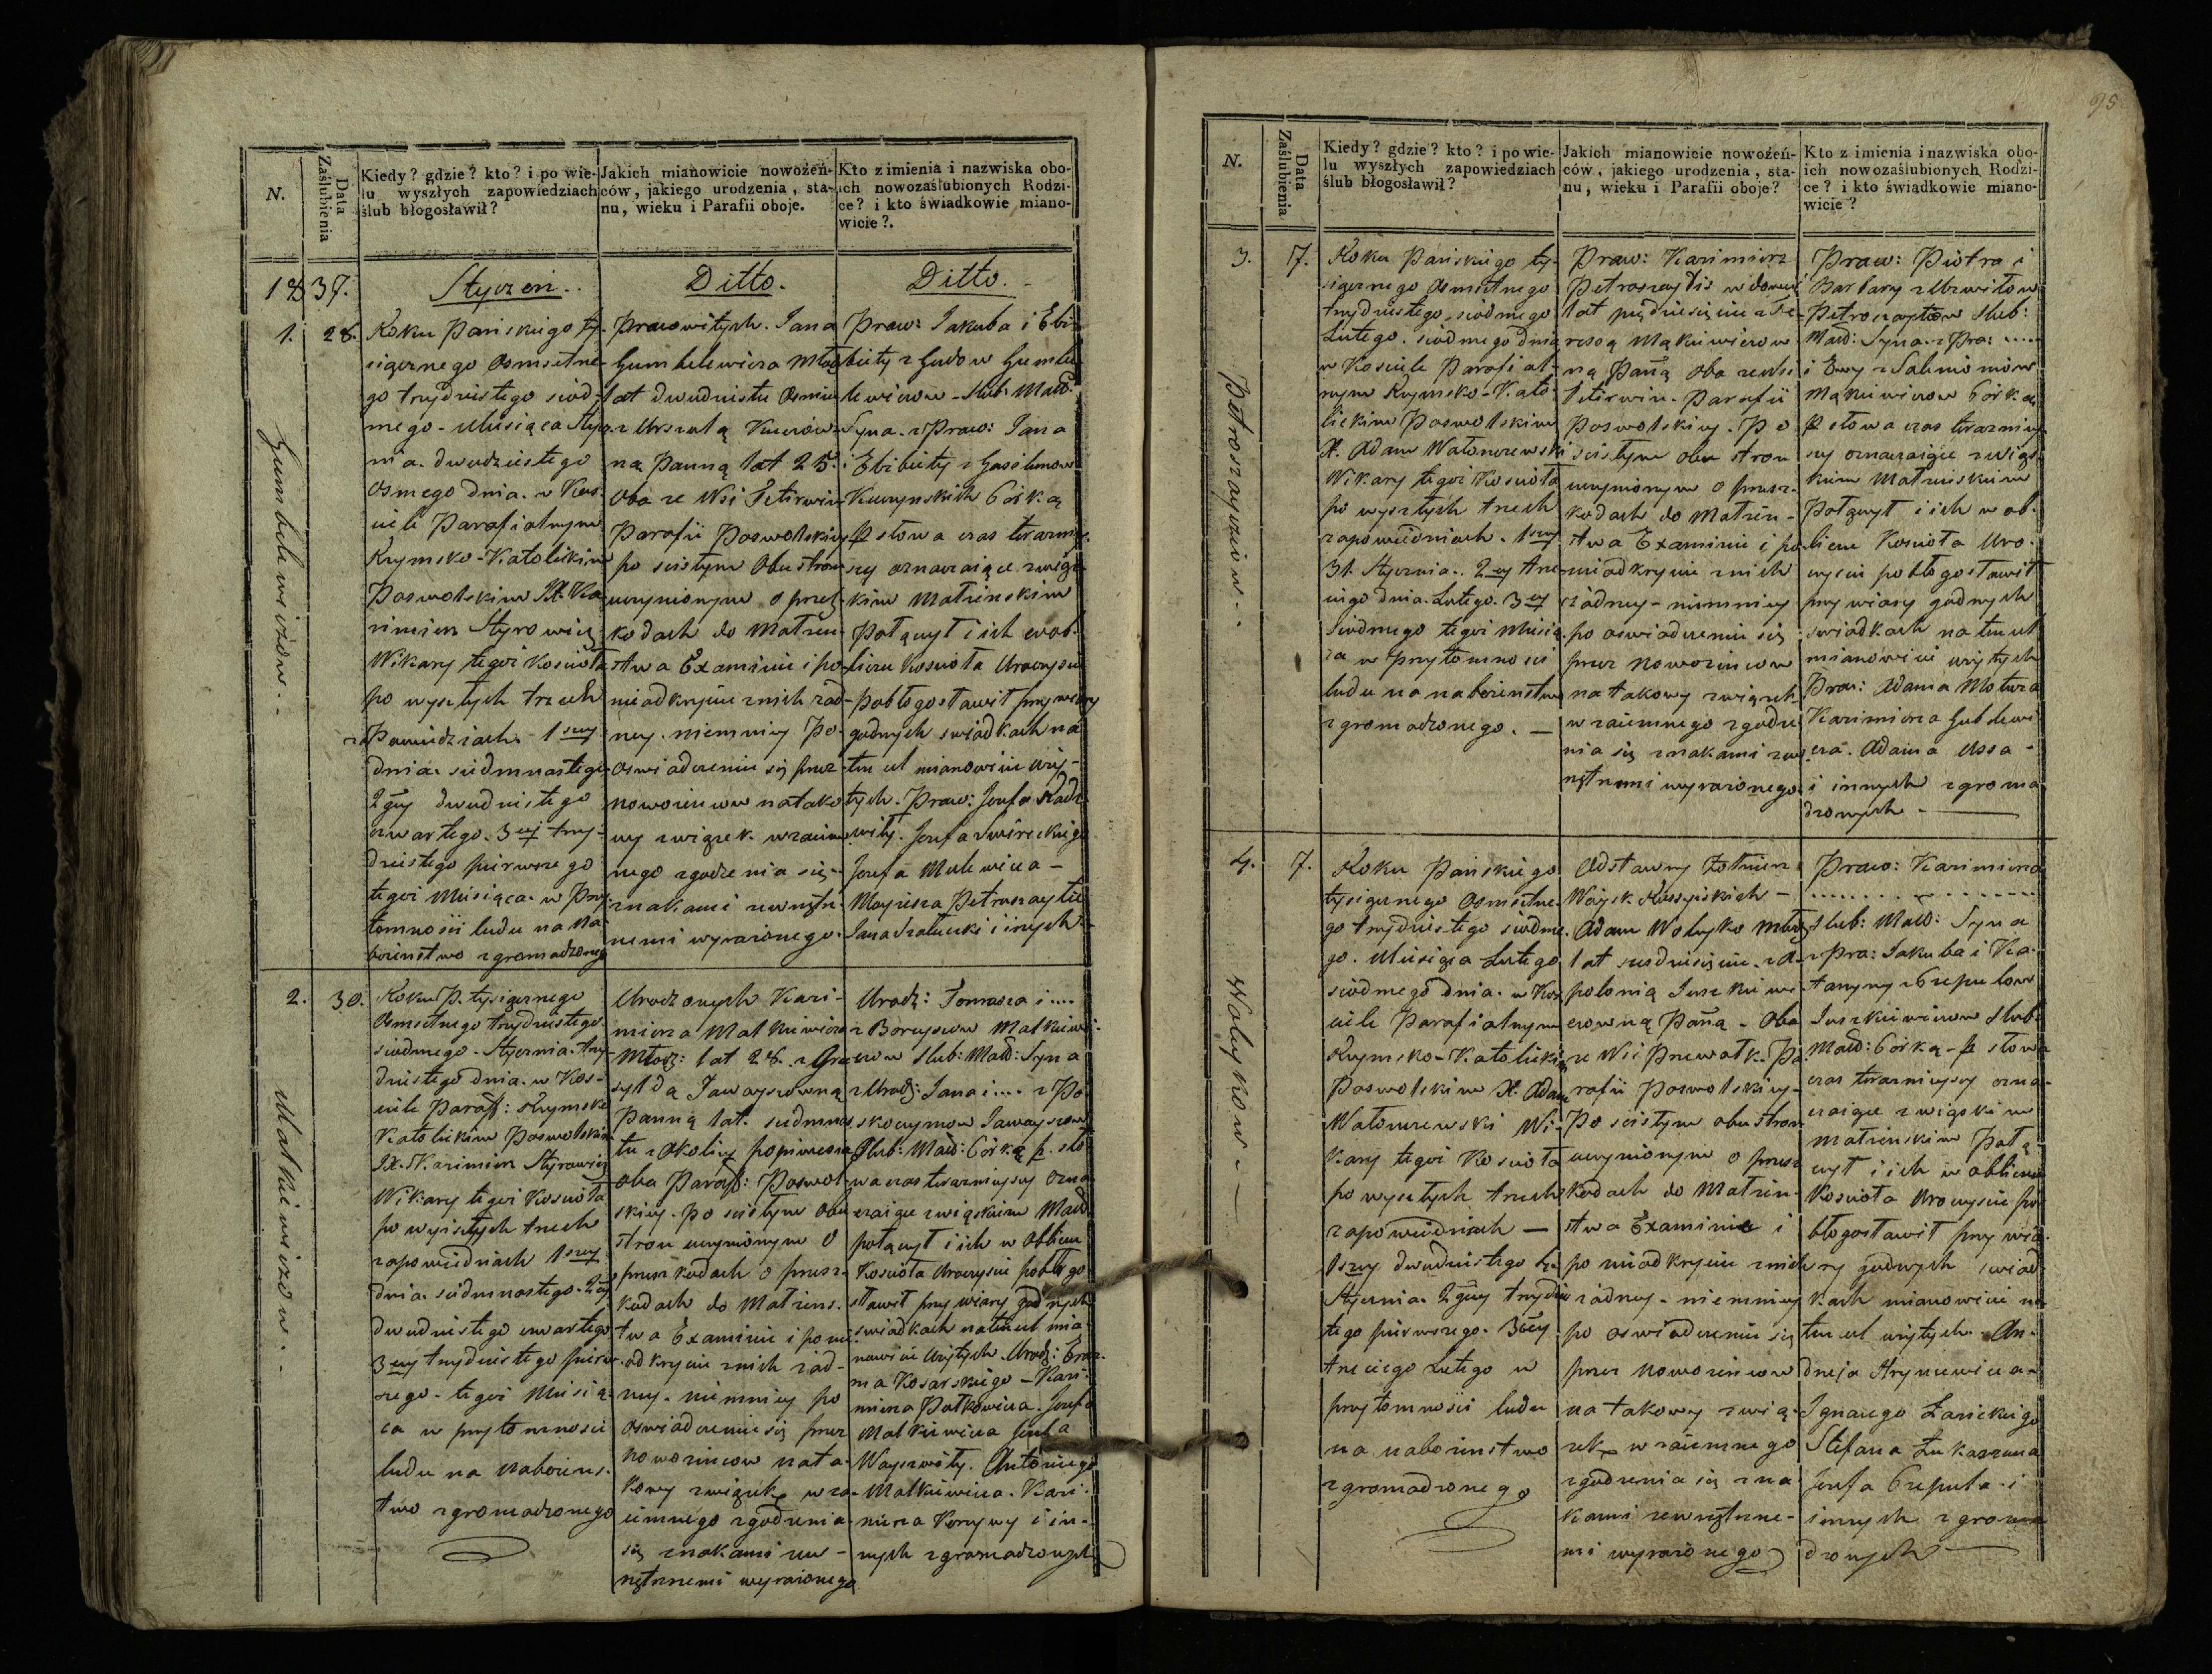 N.
Data Zaślubienia
Kiedy? gdzie? kto? i po wie-
lu wyszłych zapowiedziach
ślub błogosławił?
Jakich mianowicie nowożeń-
ców, jakiego urodzenia, sta-
nu, wieku i Parafii oboje.
Kto z imienia i nazwiska obo-
ich nowozaślubionych Rodzi-
ce? i kto świadkowie miano-
wicie?.
1837.
Styczeń.
Ditto.
Ditto.
1.
28.
Gumbelewiczow.
Roku Pańskiego ty-
siącznego Osmsetne-
go trzydziestego siod-
mego - Miesiąca Stycz-
nia. dwudziestego
Osmego dnia. w Kos-
ciele Parafialnym
Rzymsko-Katolickim
Poswolskim X. Ka-
zimierz Styrowicz
Wikary tegoż Koscioła
po wyszłych trzech
zapowiedziach. 1szey
dnia. siedmnastego
2giey dwudziestego
czwartego. 3ciey trzy-
dziestego pierwszego
tegoż Miesiąca. w Przy-
tomności ludu na Na-
bożenstwo zgromadzonego
Prawowitych. Jana
Gumbelewicza Młodz
lat dwudziestu Osmiu
z Urszulą Kuczow-
ną Panną lat 25.
Oba ze Wsi Zetirwin
Parafii Poswolskiey
po scisłym Obustron
uczynionym o przesz-
kodach do Małżen-
stwa Examinie i po
nieodkryciu z nich żad-
ney. niemniey Po-
oswiadczeniu się przez
nowożencow na tako-
wy związek wzaiem-
nego zgodzenia się.
znakami zewnętrz-
nemi wyrażonego.
Praw: Jakuba i Elż-
biety z Gudow Gumbe-
lewiczow - Slub: Małż:
Syna. z Praw: Jana
i Elżbiety z
Kuczynskich Córką
p słowa czas terazniey-
szy oznaczaiące związ-
kiem Małżenskim
Połączył i ich w ob-
liczu Kosciola Uroczyscie
pobłogosławił przy wiary
godnych swiadkach na
ten cel mianowicie uży-
tych. Praw: Jozefa
Jozefa
Jozefa Mulewicza -
Mayiesza Petroszaytis
Jana i innych.
2.
30.
Matkiewiczow.
Roku P. tysiącznego
Osmsetnego trzydziestego
siodmego - Stycznia. trzy-
dziestego dnia. w Kos-
ciele Paraf: Rzymsko
Katolickim Poswolskim
JX. Kazimierz Styrowicz
Wikary tegoż Kosciola
po wyszłych trzech
zapowiedziach 1szey
dnia. siedmnastego. 2giey
dwudziestego czwartego
3ciey trzydziestego pierw-
szego - tegoż Miesią-
ca w przytomnosci
ludu na Nabożens-
two zgromadzonego
Urodzonych Kazi-
mierza Matkiewicza
Młodz: lat 28. z Gra-
syldą Jawayszowną
Panną lat. siedmnas-
tu z Okolicy
oba Paraf: Poswol-
skiey. po scisłym Obu
stron uczynionym O
przeszkodach o przesz-
kodach do Małżens-
twa Examinie i po nie-
odkryciu z nich żad-
ney. niemniey po
oswiadczeniu się przez
nowożencow na ta-
kowy związek wza-
iemnego zgodzenia
się znakami zew-
nętrznemi wyrażonego
Urodz: Tomasza i ....
z Borysow Matkiewi-
czow Slub: Małż: Syna
z Urodz: Jana i .... z Po-
Jawayszow
Slub: Małż: Córką p. sło-
wa czas terazniejszy Ozna-
czaiące związkiem Małż
połączył i ich w Obliczu
Kosciola Uroczyscie pobłogo-
sławił przy wiary godnych
swiadkach na ten cel mia-
nowicie Użytych. Urodz: Eraz-
ma Kosarskiego - Kazi-
mierza Jozefa
Matkiewicza Jozefa
Antoniego
Matkiewicza. Kazi-
mierza i in-
nych zgromadzonych
95
N.
Data Zaślubienia
Kiedy? gdzie? kto? i po wie-
lu wyszłych zapowiedziach
ślub błogosławił?
Jakich mianowicie nowożeń-
ców, jakiego urodzenia, sta-
nu, wieku i Parafii oboje?
Kto z imienia i nazwiska obo-
ich nowozaślubionych Rodzi-
ce? i kto świadkowie miano-
wicie?
3.
7.
Petroszayciow.
Roku Pańskiego ty-
siącznego Osmsetnego
trzydziestego siodmego
Lutego. siodmego dnia
w Kosciele Parafial-
nym Rzymsko-Kato-
lickim Poswolskim
X. Adam Watonczewski
Wikary tegoż Kosciola
po wyszłych trzech
zapowiedziach. 1szey
31. Stycznia. 2giey trze-
ciego dnia. Lutego. 3ciey
siodmego tegoż Miesią-
ca w przytomnosci
ludu na nabożenstwo
zgromadzonego. —
Praw: Kazimierz
Petroszaytis wdowiec
lat pięćdziesięciu z Te-
resą Mąkiewiczow-
ną Panną oba ze Wsi
Zetirwin. Parafii
Poswolskiey. Po
scisłym obu stron
uczynionym o przesz-
kodach do Małżeń-
stwa Examinie i po
nieodkryciu z nich
żadney - niemniey
po oswiadczeniu się
przez nowożencow
na takowy związek
wzaiemnego zgodze-
nia się znakami zew-
nętrznemi wyrażonego.
Praw: Piotra i
Barbary z
Petroszaytow Slub:
Małż: Syna - z Pra: .....
i Ewy z
Mąkiewiczow Córką
p słowa czas terazniey-
szy oznaczaiące związ-
kiem Małżeńskiem
Połączył i ich w ob-
liczu Kosciola Uro-
czyscie pobłogosławił
przy wiary godnych
swiadkach na ten cel
mianowicie użytych
Praw: Adama
Kazimierza
Adama
i innych zgroma
dzonych. —
4.
7.
Wołeykow.
Roku Pańskiego
tysiącznego Osmsetne-
go trzydziestego siodme-
go. Miesiąca Lutego
siodmego dnia. w Kos-
ciele Parafialnym
Rzymsko-Katolickim
Poswolskim X. Adam
Watonczewski Wi-
kary tegoż Kosciola
po wyszłych trzech
zapowiedziach —
1szey dwudziestego
Stycznia. 2giey trzydzies-
tego pierwszego. 3ciey
trzeciego Lutego w
przytomności ludu
na nabożenstwo
zgromadzonego
Odstawny Żołnierz
Woysk Rossyiskich -
Adam Wołeyko Młodz
lat szesdziesięciu. z A-
polonią Juszkiewi-
czowną Panną - Oba
ze Wsi Przewałk. Pa-
rafii Poswolskiey -
Po scisłym obu stron
uczynionym o przesz
kodach do Małżen-
stwa Examinie i
po nieodkryciu z nich
żadney - niemniey
po oswiadczeniu się
przez nowożencow
na takowy zwią-
zek wzaiemnego
zgodzenia się zna-
kami zewnętrzne-
mi wyrażonego
Praw: Kazimierza
..............
Slub: Małż: Syna
z Pra: Jakuba i Ka-
tarzyny z
Juszkiewiczow Slub:
Małż: Córką - p słowa
czas terazniejszy ozna-
czaiące związkiem
małżenskim Połą-
czył i ich w obliczu
Kosciola Uroczyscie po-
błogosławił przy wia-
ry godnych swiad-
kach mianowicie na
ten cel użytych. An-
drzeja
Ignacego
Stefana Łukaszuna
Jozefa i
innych zgroma
dzonych —